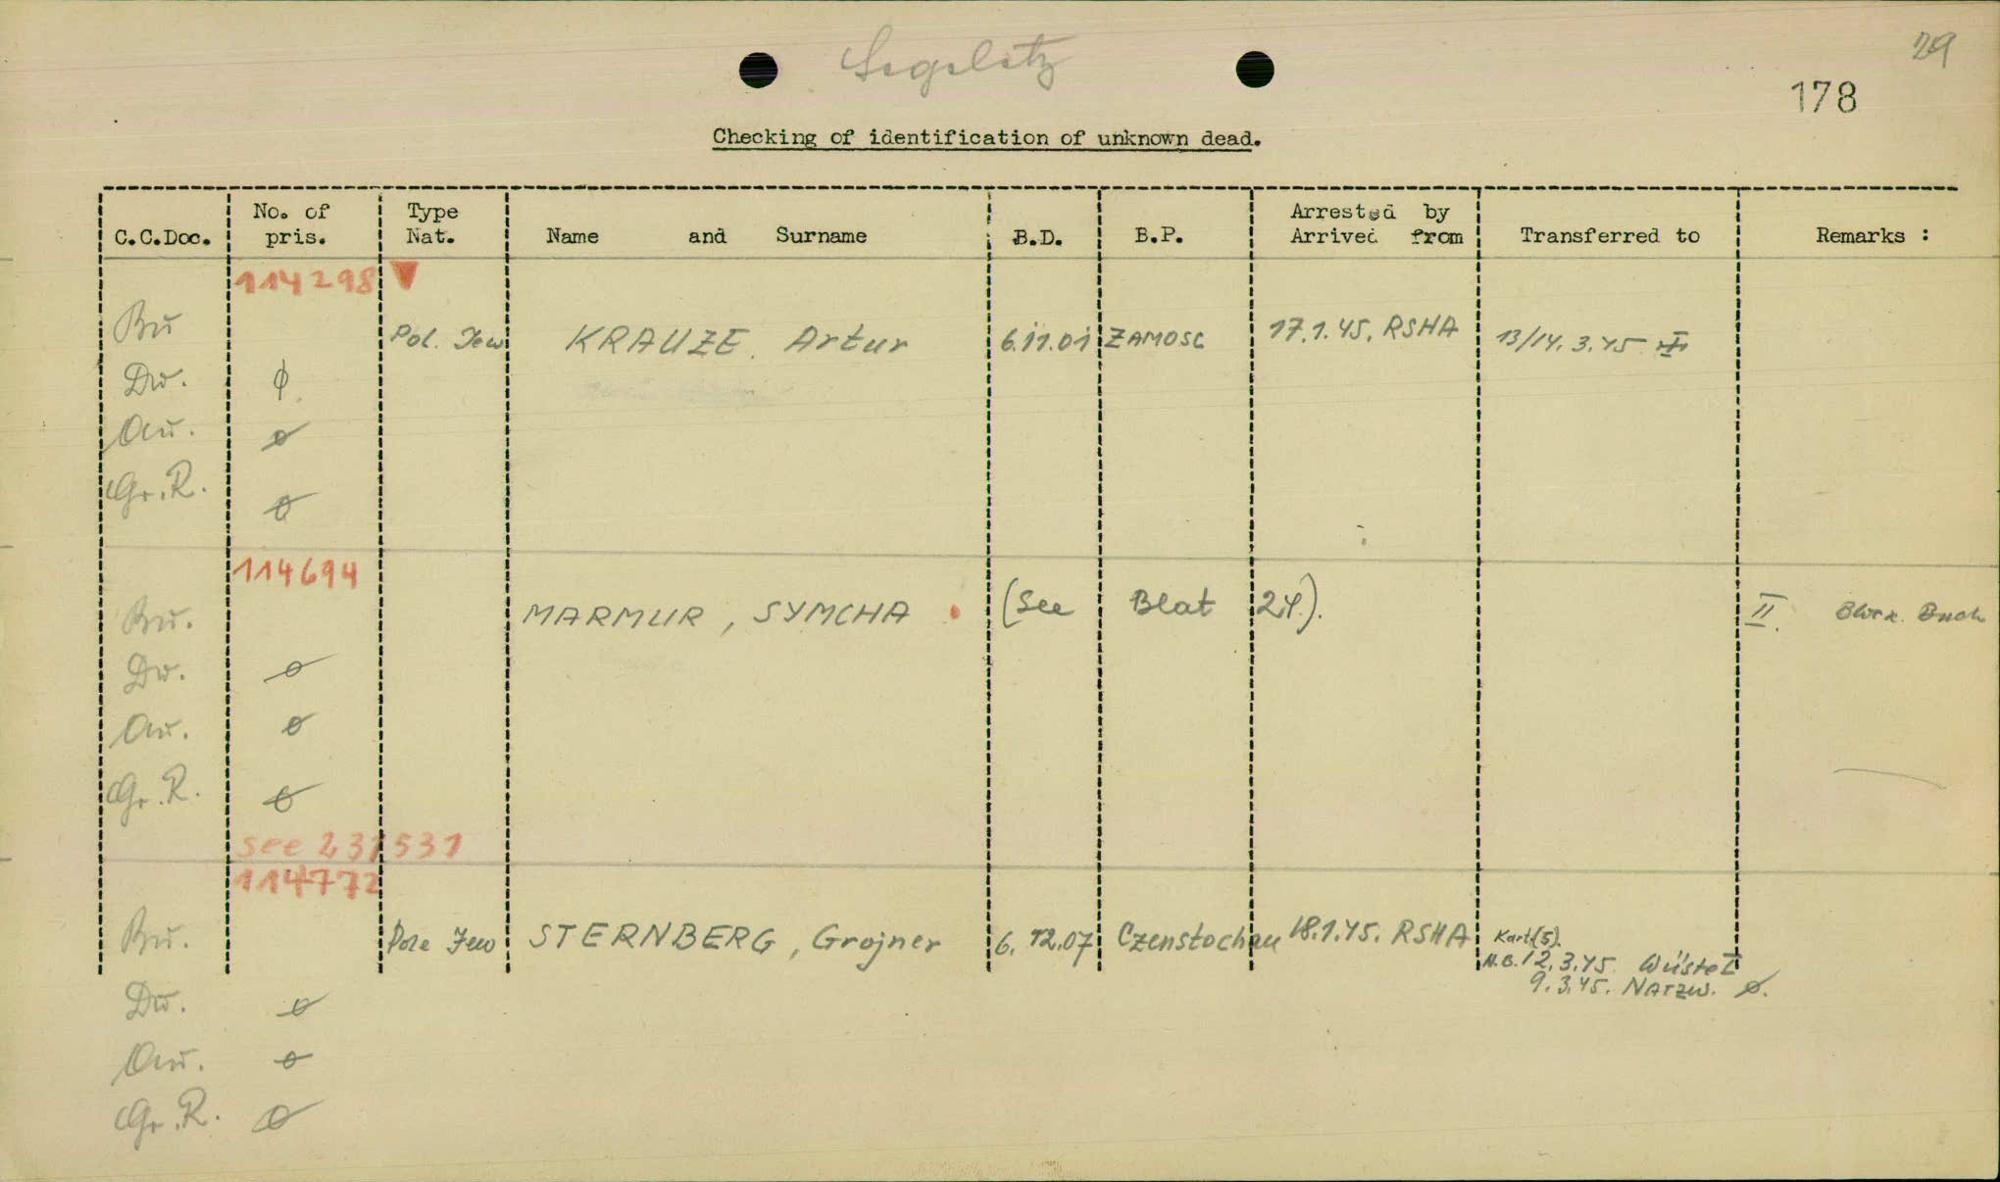 29
178
Checking of identification of unknown dead.
C.C.Doc. No. of pris. Type Nat. Name and Surname B.D. B.P. Arrested by Arrived from Transferred to Remarks :
114298
Bu Pol. Jew KRAUZE. Artur 6.11.01 ZAMOSC 17.1.45. RSHA 13/14.3.45 III
Dw. ø
Au. ø
Gr.R. ø
114694
Bu. MARMUR, SYMCHA (See Blat 24). II. Buch
Dw. ø
Au. ø
Gr.R. ø
see 231531
114772
Bu. Pole Jew STERNBERG, Grojner 6.12.07 Czenstochau 18.1.45. RSHA Kart(5).
N.B. 12.3.45 Wüste I
9.3.45. Natzw. ø.
Dw. ø
Au. ø
Gr.R. ø